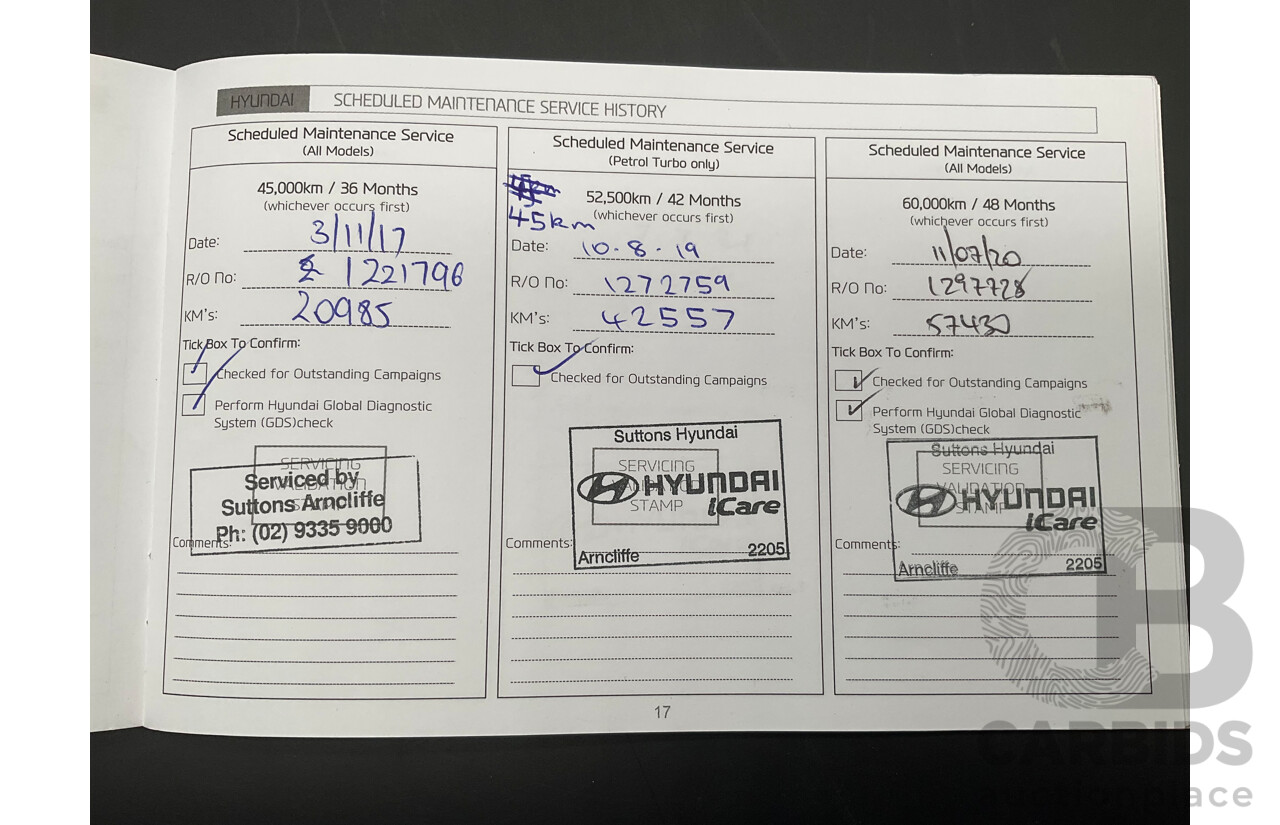 HYUNDAI SCHEDULED MAINTENANCE SERVICE HISTORY
Scheduled Maintenance Service
(All Models)
45,000km / 36 Months
(whichever occurs first)
Date: 3/11/17
R/O No: 1221796
KM's: 20985
Tick Box To Confirm:
Checked for Outstanding Campaigns
Perform Hyundai Global Diagnostic
System (GDS)check
SERVICING
VALIDATION
STAMP
Serviced by
Suttons Arncliffe
Ph: (02) 9335 9000
Comments:
Scheduled Maintenance Service
(Petrol Turbo only)
52,500km / 42 Months
(whichever occurs first)
45km
Date: 10.8.19
R/O No: 1272759
KM's: 42557
Tick Box To Confirm:
Checked for Outstanding Campaigns
SERVICING
VALIDATION
STAMP
Suttons Hyundai
HYUNDAI
iCare
Arncliffe 2205
Comments:
Scheduled Maintenance Service
(All Models)
60,000km / 48 Months
(whichever occurs first)
Date: 11/07/20
R/O No: 1297728
KM's: 57430
Tick Box To Confirm:
Checked for Outstanding Campaigns
Perform Hyundai Global Diagnostic
System (GDS)check
SERVICING
VALIDATION
STAMP
Suttons Hyundai
HYUNDAI
iCare
Arncliffe 2205
Comments:
17
CARBIDS
auctionplace